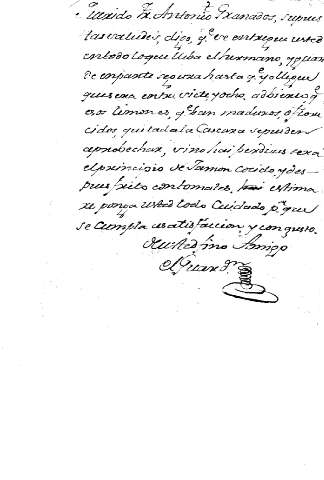 Querido Fr. Antonio Granados, supues
tas saludes, digo, q.e se entregue usted
en todo lo que lleba el hermano, y guar
de en parte segura hasta q.e yo llegue
que sera entre siete y ocho, adbierto q.e
esos limones, q.e ban maduros, o
cidos, quitada la Cascara se pueden
aprobechar, si no hai berduras sera
el principio de Jamon Cosido, y des-
pues frito con tomates, estima
re ponga usted todo Cuidado p.a que
se Cumpla a satisfaccion, y con gusto.
De usted fino Amigo
el Guard.n